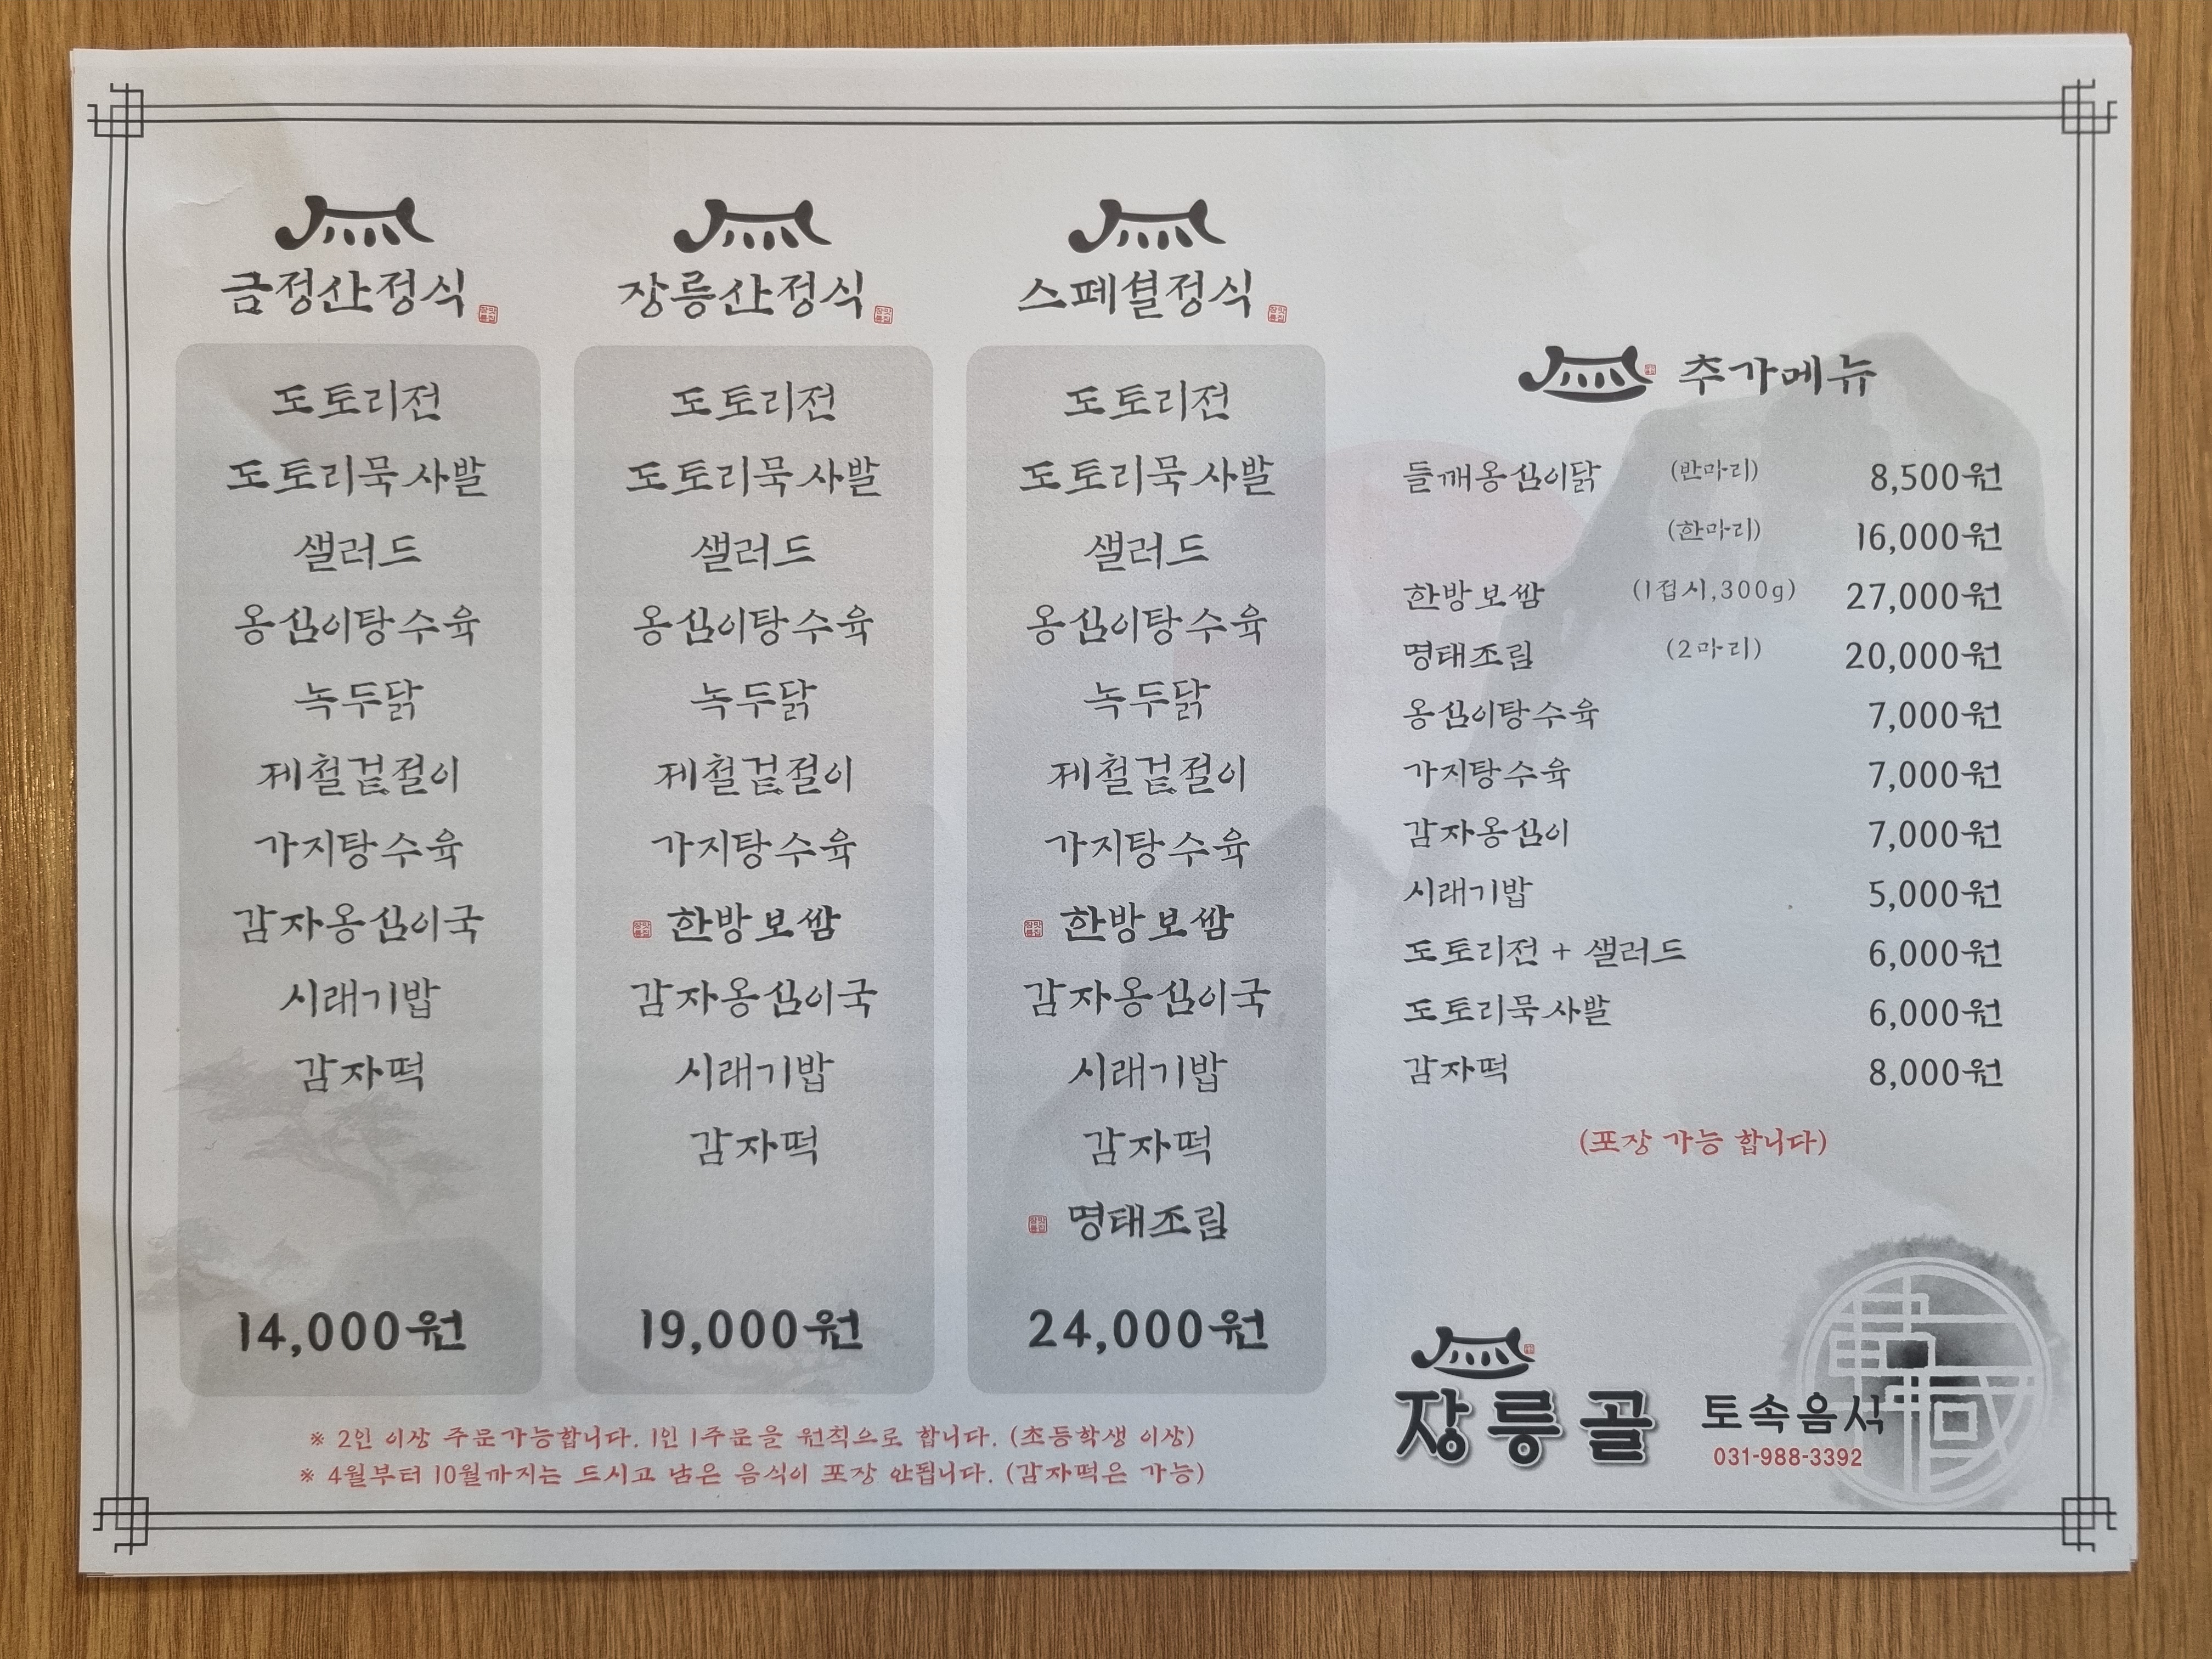 금정산정식
도토리전
도토리묵사발
샐러드
옹심이탕수육
녹두닭
제철겉절이
가지탕수육
감자옹심이국
시래기밥
감자떡
14,000원
장릉산정식
도토리전
도토리묵사발
샐러드
옹심이탕수육
녹두닭
제철겉절이
가지탕수육
한방보쌈
감자옹심이국
시래기밥
감자떡
19,000원
스페셜정식
도토리전
도토리묵사발
샐러드
옹심이탕수육
녹두닭
제철겉절이
가지탕수육
한방보쌈
감자옹심이국
시래기밥
감자떡
명태조림
24,000원
※ 2인 이상 주문가능합니다. 1인 1주문을 원칙으로 합니다. (초등학생 이상)
※ 4월부터 10월까지는 드시고 남은 음식이 포장 안됩니다. (감자떡은 가능)
추가메뉴
들깨옹심이닭 (반마리) 8,500원
(한마리) 16,000원
한방보쌈 (1접시,300g) 27,000원
명태조림 (2마리) 20,000원
옹심이탕수육 7,000원
가지탕수육 7,000원
감자옹심이 7,000원
시래기밥 5,000원
도토리전 + 샐러드 6,000원
도토리묵사발 6,000원
감자떡 8,000원
(포장 가능 합니다)
장릉골 토속음식
031-988-3392